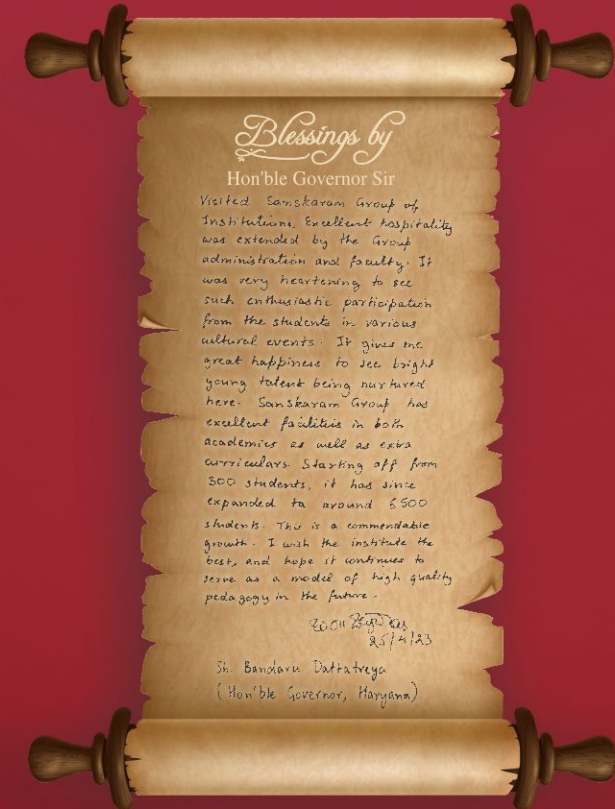 Blessings by
Hon'ble Governor Sir
Visited Sanskaram Group of
Institutions. Excellent hospitality
was extended by the Group
administration and faculty. It
was very heartening to see
such enthusiastic participation
from the students in various
cultural events. It gives me
great happiness to see bright
young talent being nurtured
here. Sanskaram Group has
excellent facilities in both
academics as well as extra
curriculars. Starting off from
300 students, it has since
expanded to around 6500
students. This is a commendable
growth. I wish the institute the
best, and hope it continues to
serve as a model of high quality
pedagogy in the future.
25/4/23
Sh. Bandaru Dattatreya
(Hon'ble Governor, Haryana)